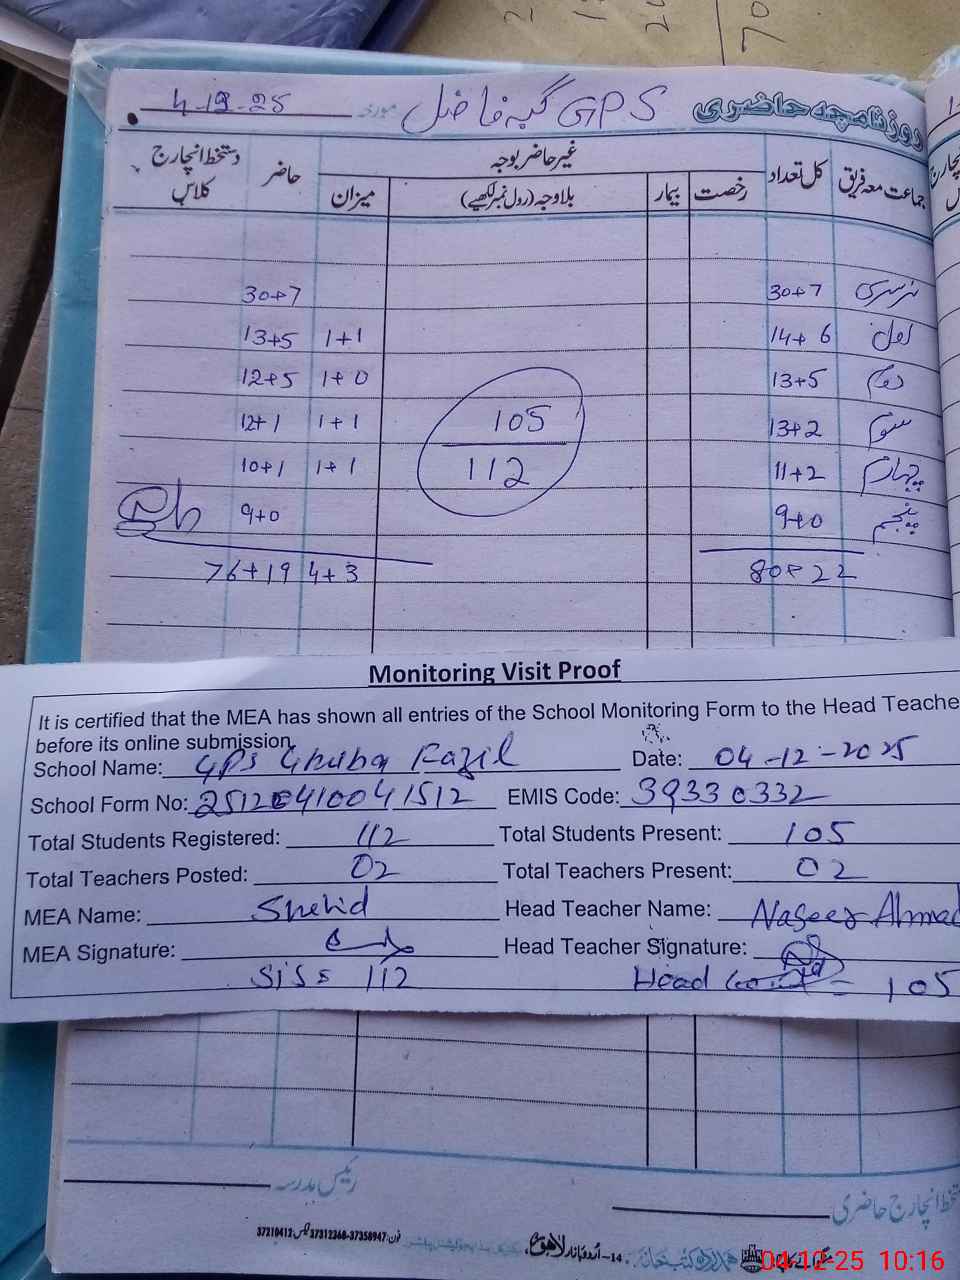 روزنامچہ حاضری GPS گبہ فاضل مورخہ 4-12-25
جماعت معہ فریق کل تعداد غیر حاضر بوجہ حاضر دستخط انچارج کلاس
رخصت بیمار بلاوجہ (رول نمبر لکھیے) میزان
نرسری 30+7 30+7
اول 14+6 1+1 13+5
دوئم 13+5 1+0 12+5
سوئم 13+2 1+1 12+1
چہارم 11+2 1+1 10+1
پنجم 9+0 9+0
105
112
80+22 4+3 76+19
Monitoring Visit Proof
It is certified that the MEA has shown all entries of the School Monitoring Form to the Head Teache
before its online submission
School Name: GPS Ghuba Fazil Date: 04-12-2025
School Form No: 25120410041512 EMIS Code: 39330332
Total Students Registered: 112 Total Students Present: 105
Total Teachers Posted: 02 Total Teachers Present: 02
MEA Name: Shahid Head Teacher Name: Naseer Ahmad
MEA Signature: Head Teacher Signature:
SiSs 112 Head Count = 105
رئیس مدرسہ
دستخط انچارج حاضری
14-اردو بازار لاہور فون: 37358947-37312368 فیکس: 37210412
04-12-25 10:16